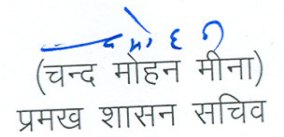 (चन्द मोहन मीना)
प्रमख शासन सचिव